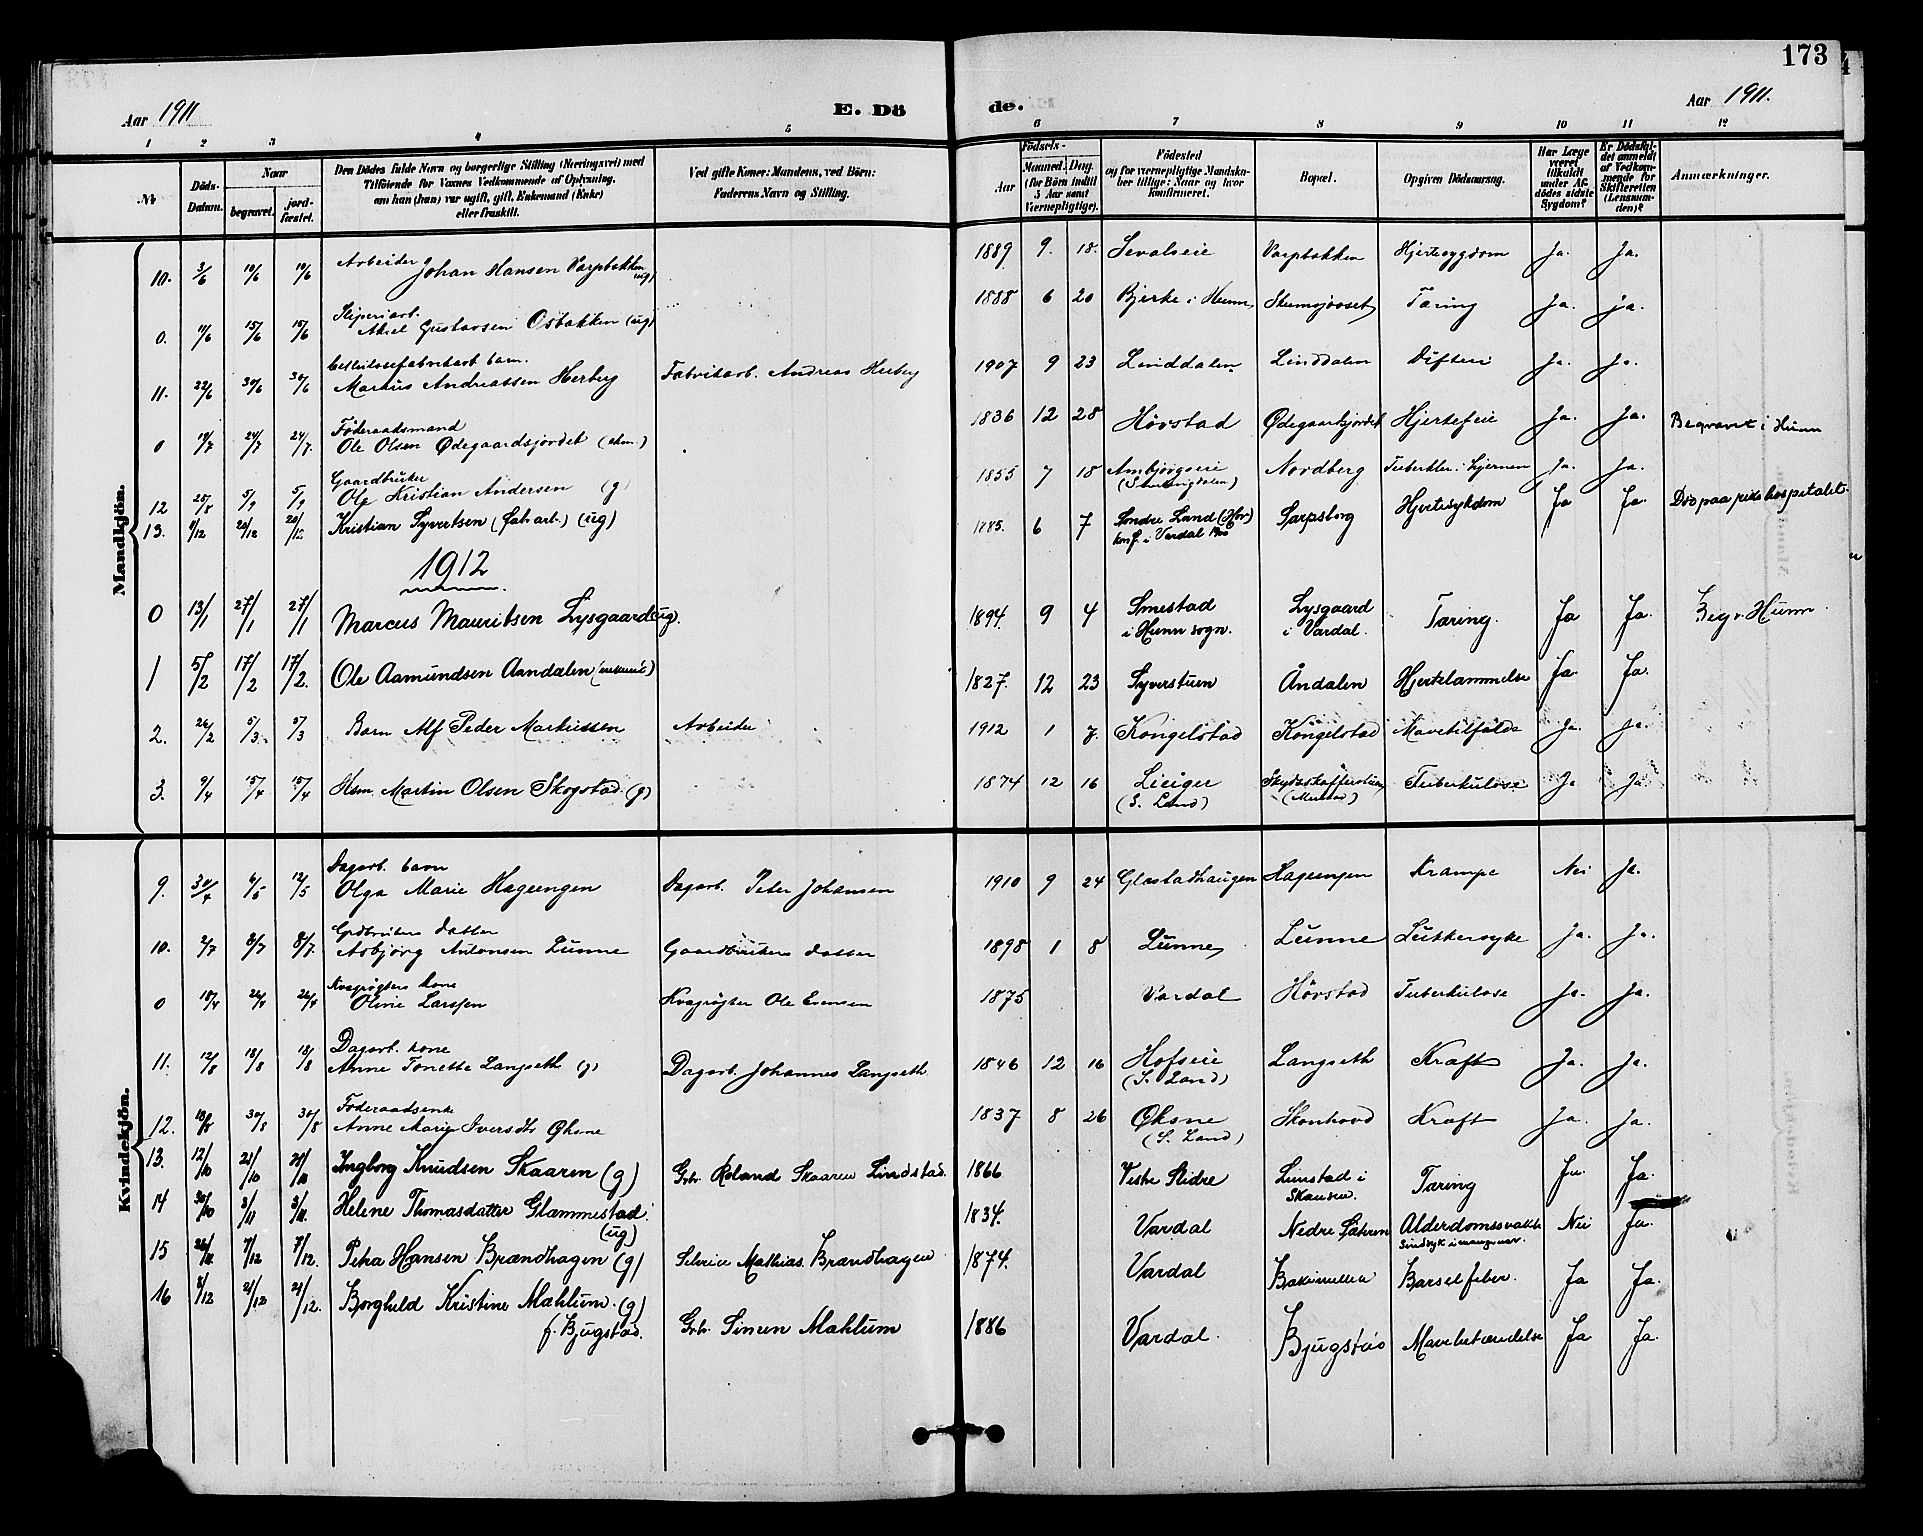 173
Aar 1911
E. Dö
de.
Aar 1911.
1 2 3 4 5 6 7 8 9 10 11 12
№
Döds-Datum.
Naar
begravet.
jord-fæstet.
Den Dödes fulde Navn og borgerlige Stilling (Næringsvei) med
Tilföiende for Voxnes Vedkommende af Oplysning,
om han (hun) var ugift, gift, Enkemand (Enke)
eller fraskilt.
Ved gifte Koner: Mandens, ved Börn:
Faderens Navn og Stilling.
Födsels-
Aar
Maaned. Dag.
(for Börn indtil
5 Aar samt
Værnepligtige).
Födested
og for værnepligtige Mandska-
ber tillige: Naar og hvor
konfirmeret.
Bopæl.
Opgiven Dödsaarsag.
Har Læge
været
tilkaldt
under Af-
dödes sidste
Sygdom?
Er Dödsfal-
det anmeldt
af Vedkom-
mende for
Skifteretten
(Lensman-
den)?
Anmærkninger.
Mandkjön.
10. 3/6 10/6 10/6 Arbeider Johan Hansen Varpbakken (ug) 1889 9. 18. Sevalseie Varpbakken Hjertesygdom Ja. Ja.
0. 11/6 15/6 15/6 Sliperiarb. Aksel Gustavsen Osbakken (ug) 1888 6 20 Bjerke i Hunn Skumsjøoset Tæring Ja. Ja.
11. 22/6 30/6 30/6 Cellulosefabrikarb. barn. Markus Andreassen Herberg Fabrikarb. Andreas Herberg 1907 9 23 Linddalen Linddalen Difteri Ja. Ja.
0 19/7 24/7 24/7. Føderaadsmand Ole Olsen Ødegaardsjordet (ekm.) 1836 12 28 Hövstad Ødegaardsjordet Hjertefeil Ja. Ja. Begravet i Hunn
12 25/8 5/9 5/9 Gaardbruker Ole Kristian Andersen (g) 1855 7 18 Ambjörgseie Nordberg Tuberkler i hjernen Ja. Ja. Død paa rikshospitalet.
13. 11/12 20/12 20/12 Kristian Syvertsen (fabarb.) (ug) 1885. 6 7 Søndre Land (Hov) konf. i Vardal 1900 Sarpsborg Hjertesykdom Ja Ja.
1912
0 13/1 27/1 27/1 Marcus Mauritsen Lysgaard ug. 1894. 9 4 Smestad i Hunn sogn. Lysgaard i Vardal. Tæring. Ja Ja. Begr. Hunn.
1 5/2 17/2 17/2. Ole Aamundsen Aandalen (enkem.) 1827. 12 23 Syverstuen Åndalen Hjertelammelse Ja. Ja.
2. 26/2 5/3. 5/3 Barn Alf Peder Markussen Arbeider 1912 1 7. Kongelstad Kongelstad Mavetilfælde Ja. Ja.
3. 9/4 15/4 15/4 Hsm. Martin Olsen Skogstad. (g) 1874 12 16 (S. Land) Tuberkulose Ja Ja.
Kvindekjön.
9. 30/4 6/5 12/5 Dagarb. barn Olga Marie Hageengen Dagarb. Peter Johansen 1910 9 24 Glæstadhaugen Hageengen Krampe Nei Ja.
10. 2/7 8/7 8/7. Grdbrukers datter Asbjörg Antonsen Lunne Gaardbrukers datter 1898 1 8 Lunne Lunne Sukkersyke Ja. Ja.
0 18/8 26/8 26/8 Kvægrögters kone Oline Larssen Kvægrögter Ole Evensen 1875 Vardal Hövstad Tuberkulose Ja. Ja.
11. 12/8 18/8 18/8 Dagarb. kone Anne Tonette Langseth (g) Dagarb. Johannes Langseth 1846 12 16 Hofseie (S. Land) Langseth Kræft Ja. Ja.
12. 18/8 30/8 30/8 Føderaadsenke Anne Marie Iversdtr. Øksne 1837 8 26 Øksne (S. Land) Skonhovd Kræft Ja. Ja.
13. 12/10 21/10 21/10 Ingborg Knudsen Skaaren (g) Grbr. Roland Skaaren Lindstad. 1866 Vestre Slidre Linstad i Skansen. Tæring Ja. Ja.
14 30/10 3/11 3/11. Helene Thomasdatter Glæmmestad. (ug) 1834. Vardal Nedre Sæteren Alderdomssvakhet Sindsyk i mange aar. Nei Ja.
15 26/11. 7/12 7/12. Petra Hansen Brændhagen (g) Mathias Brændhagen 1874. Vardal Barselfeber. Ja Ja.
16 8/12 21/12 21/12. Borghild Kristine Mæhlum. (g) f. Bjugstad. Grbr. Simen Mæhlum 1886 Vardal. Bjugstad Mavebetændelse Ja Ja.